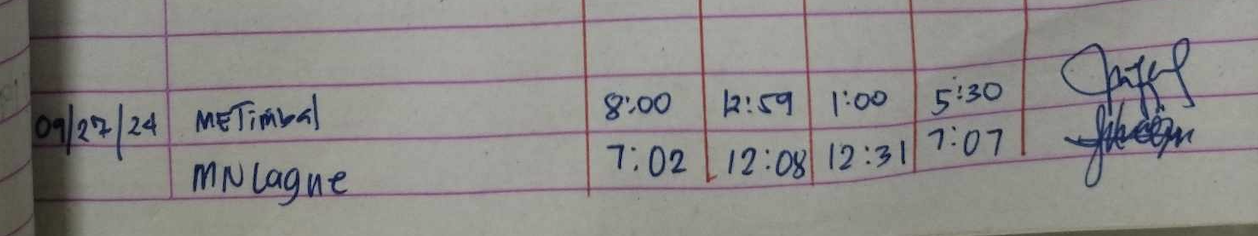 09/27/24 METimbal 8:00 12:59 1:00 5:30
MNLague 7:02 12:08 12:31 7:07